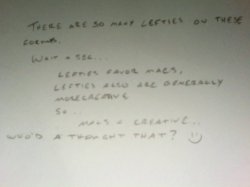 THERE ARE SO MANY LEFTIES ON THESE
FORUMS.
WAIT A SEC...
LEFTIES FAVOR MACS,
LEFTIES ALSO ARE GENERALLY
MORECREATIVE
SO...
MACS = CREATIVE..
WHO'D A THOUGHT THAT? ☺